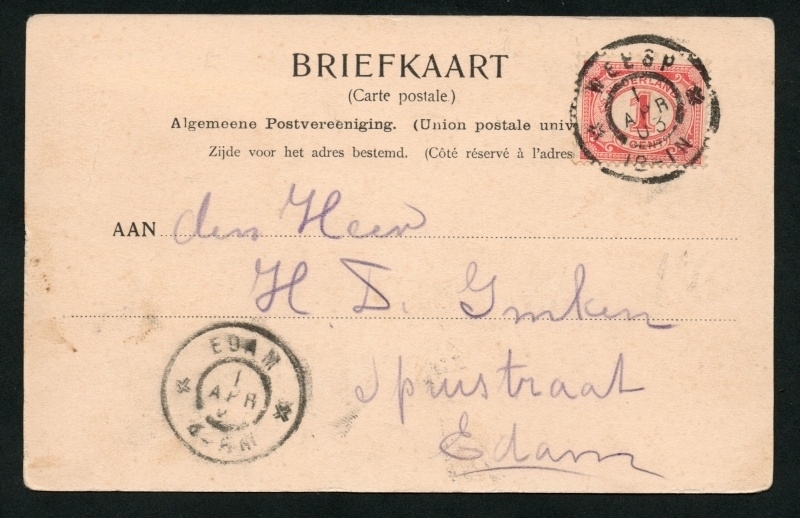 BRIEFKAART
(Carte postale.)
Algemeene Postvereeniging. (Union postale univ
Zijde voor het adres bestemd. (Côté réservé à l'adres
WEESP
1
APR
03
12-1N
NEDERLAND
1
CENT
AAN den Heer
H D. Gmken
Spuistraat
Edam
EDAM
1
APR